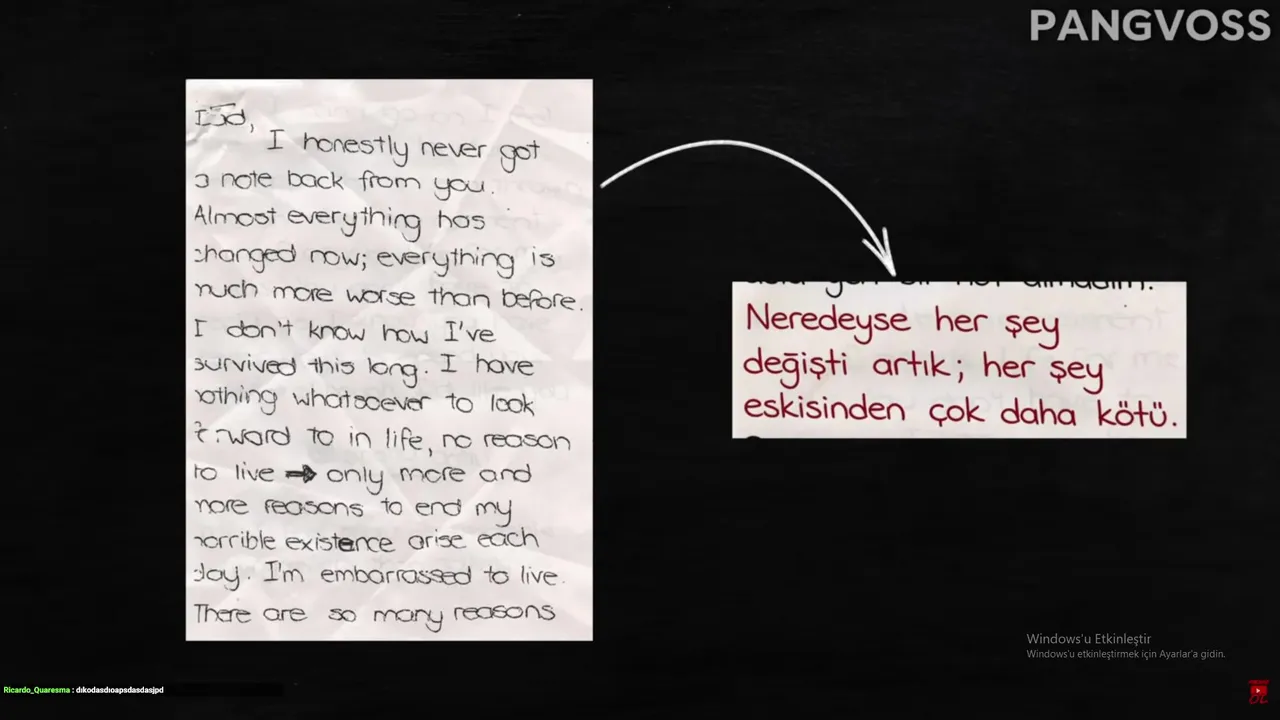 PANGVOSS
I honestly never got
a note back from you.
Almost everything has
changed now; everything is
much more worse than before.
I don't know how I've
survived this long. I have
nothing whatsoever to look
to in life, no reason
to live → only more and
more reasons to end my
horrible existence arise each
day. I'm embarrassed to live.
There are so many reasons
bir not almadım.
Neredeyse her şey
değişti artık; her şey
eskisinden çok daha kötü.
Windows'u Etkinleştir
Windows'u etkinleştirmek için Ayarlar'a gidin.
Ricardo_Quaresma : dıkodasdıoapsdasdasjpd